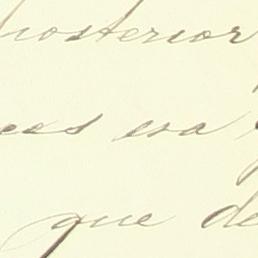 posterior
ees esa
que de